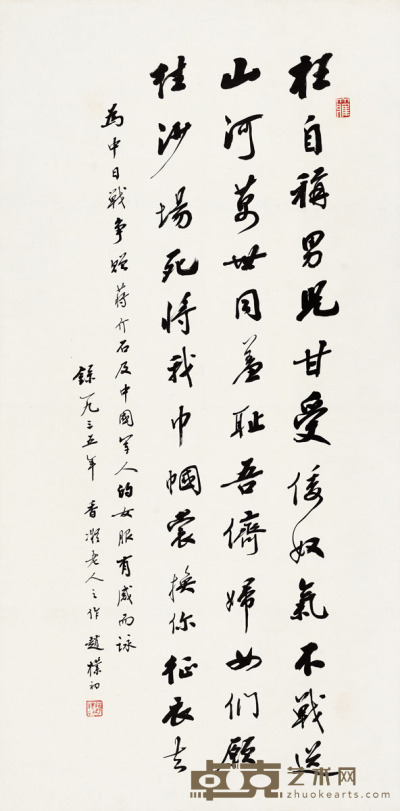 枉自稱男兒甘受倭奴氣不戰送
山河萬世同羞恥吾儕婦女們願
往沙場死將我巾幗裳換你征衣去
為中日戰爭贈蔣介石及中國軍人的女服有感而詠
錄一九三五年香凝老人之作 趙樸初
卓克艺术网
zhuokearts.com